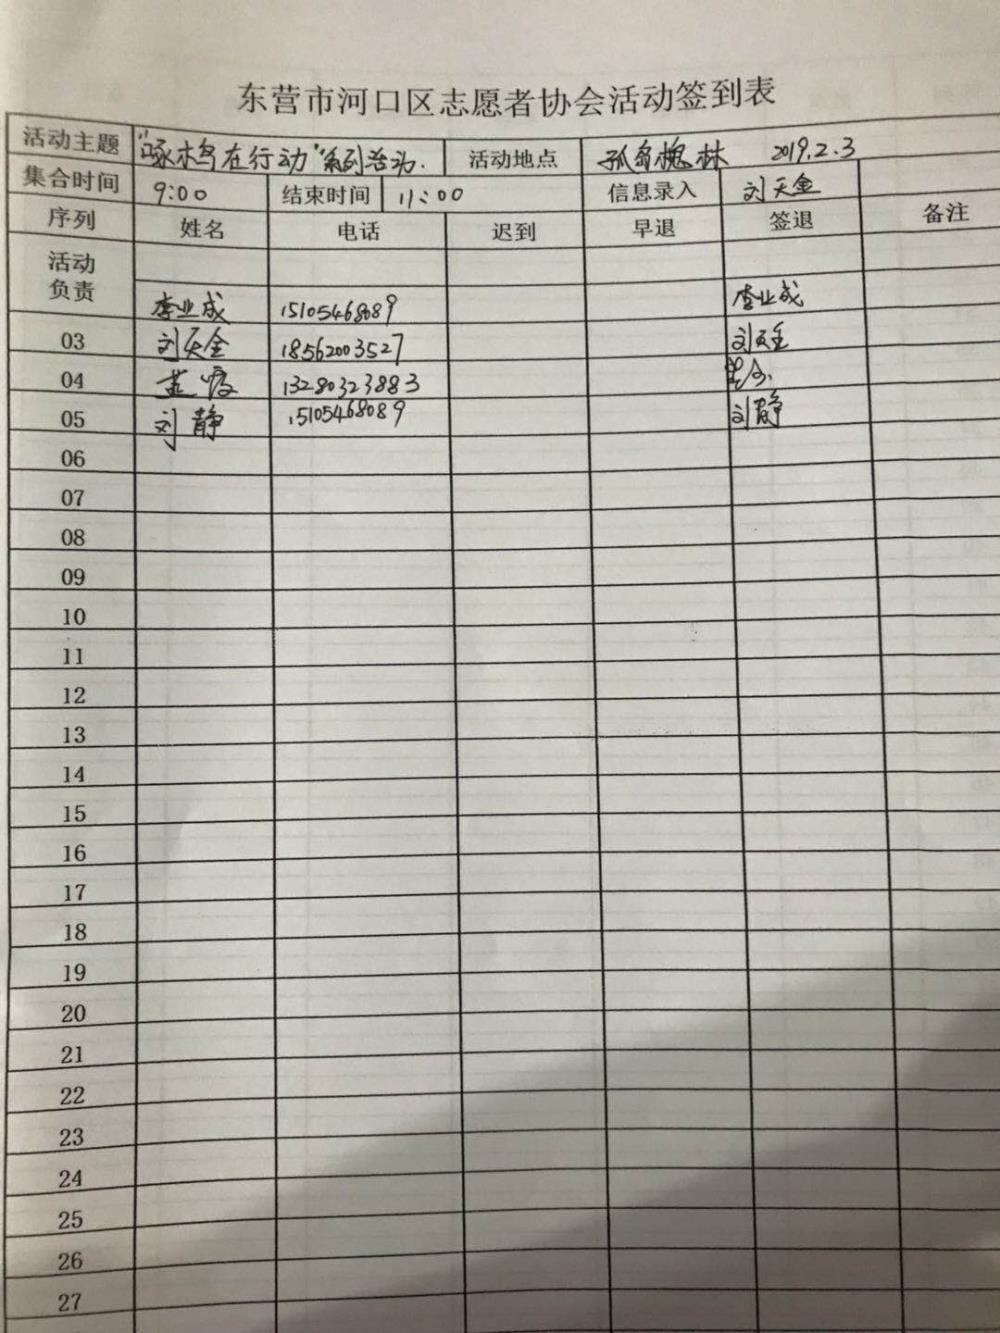 东营市河口区志愿者协会活动签到表
活动主题 "啄木鸟在行动"系列活动. 活动地点 孤岛槐林 2019.2.3
集合时间 9:00 结束时间 11:00 信息录入 刘天金
序列 姓名 电话 迟到 早退 签退 备注
活动
负责
李业成 15105468089 李业成
03 刘天金 18562003527 刘天金
04 13280323883
05 刘静 15105468089 刘静
06
07
08
09
10
11
12
13
14
15
16
17
18
19
20
21
22
23
24
25
26
27